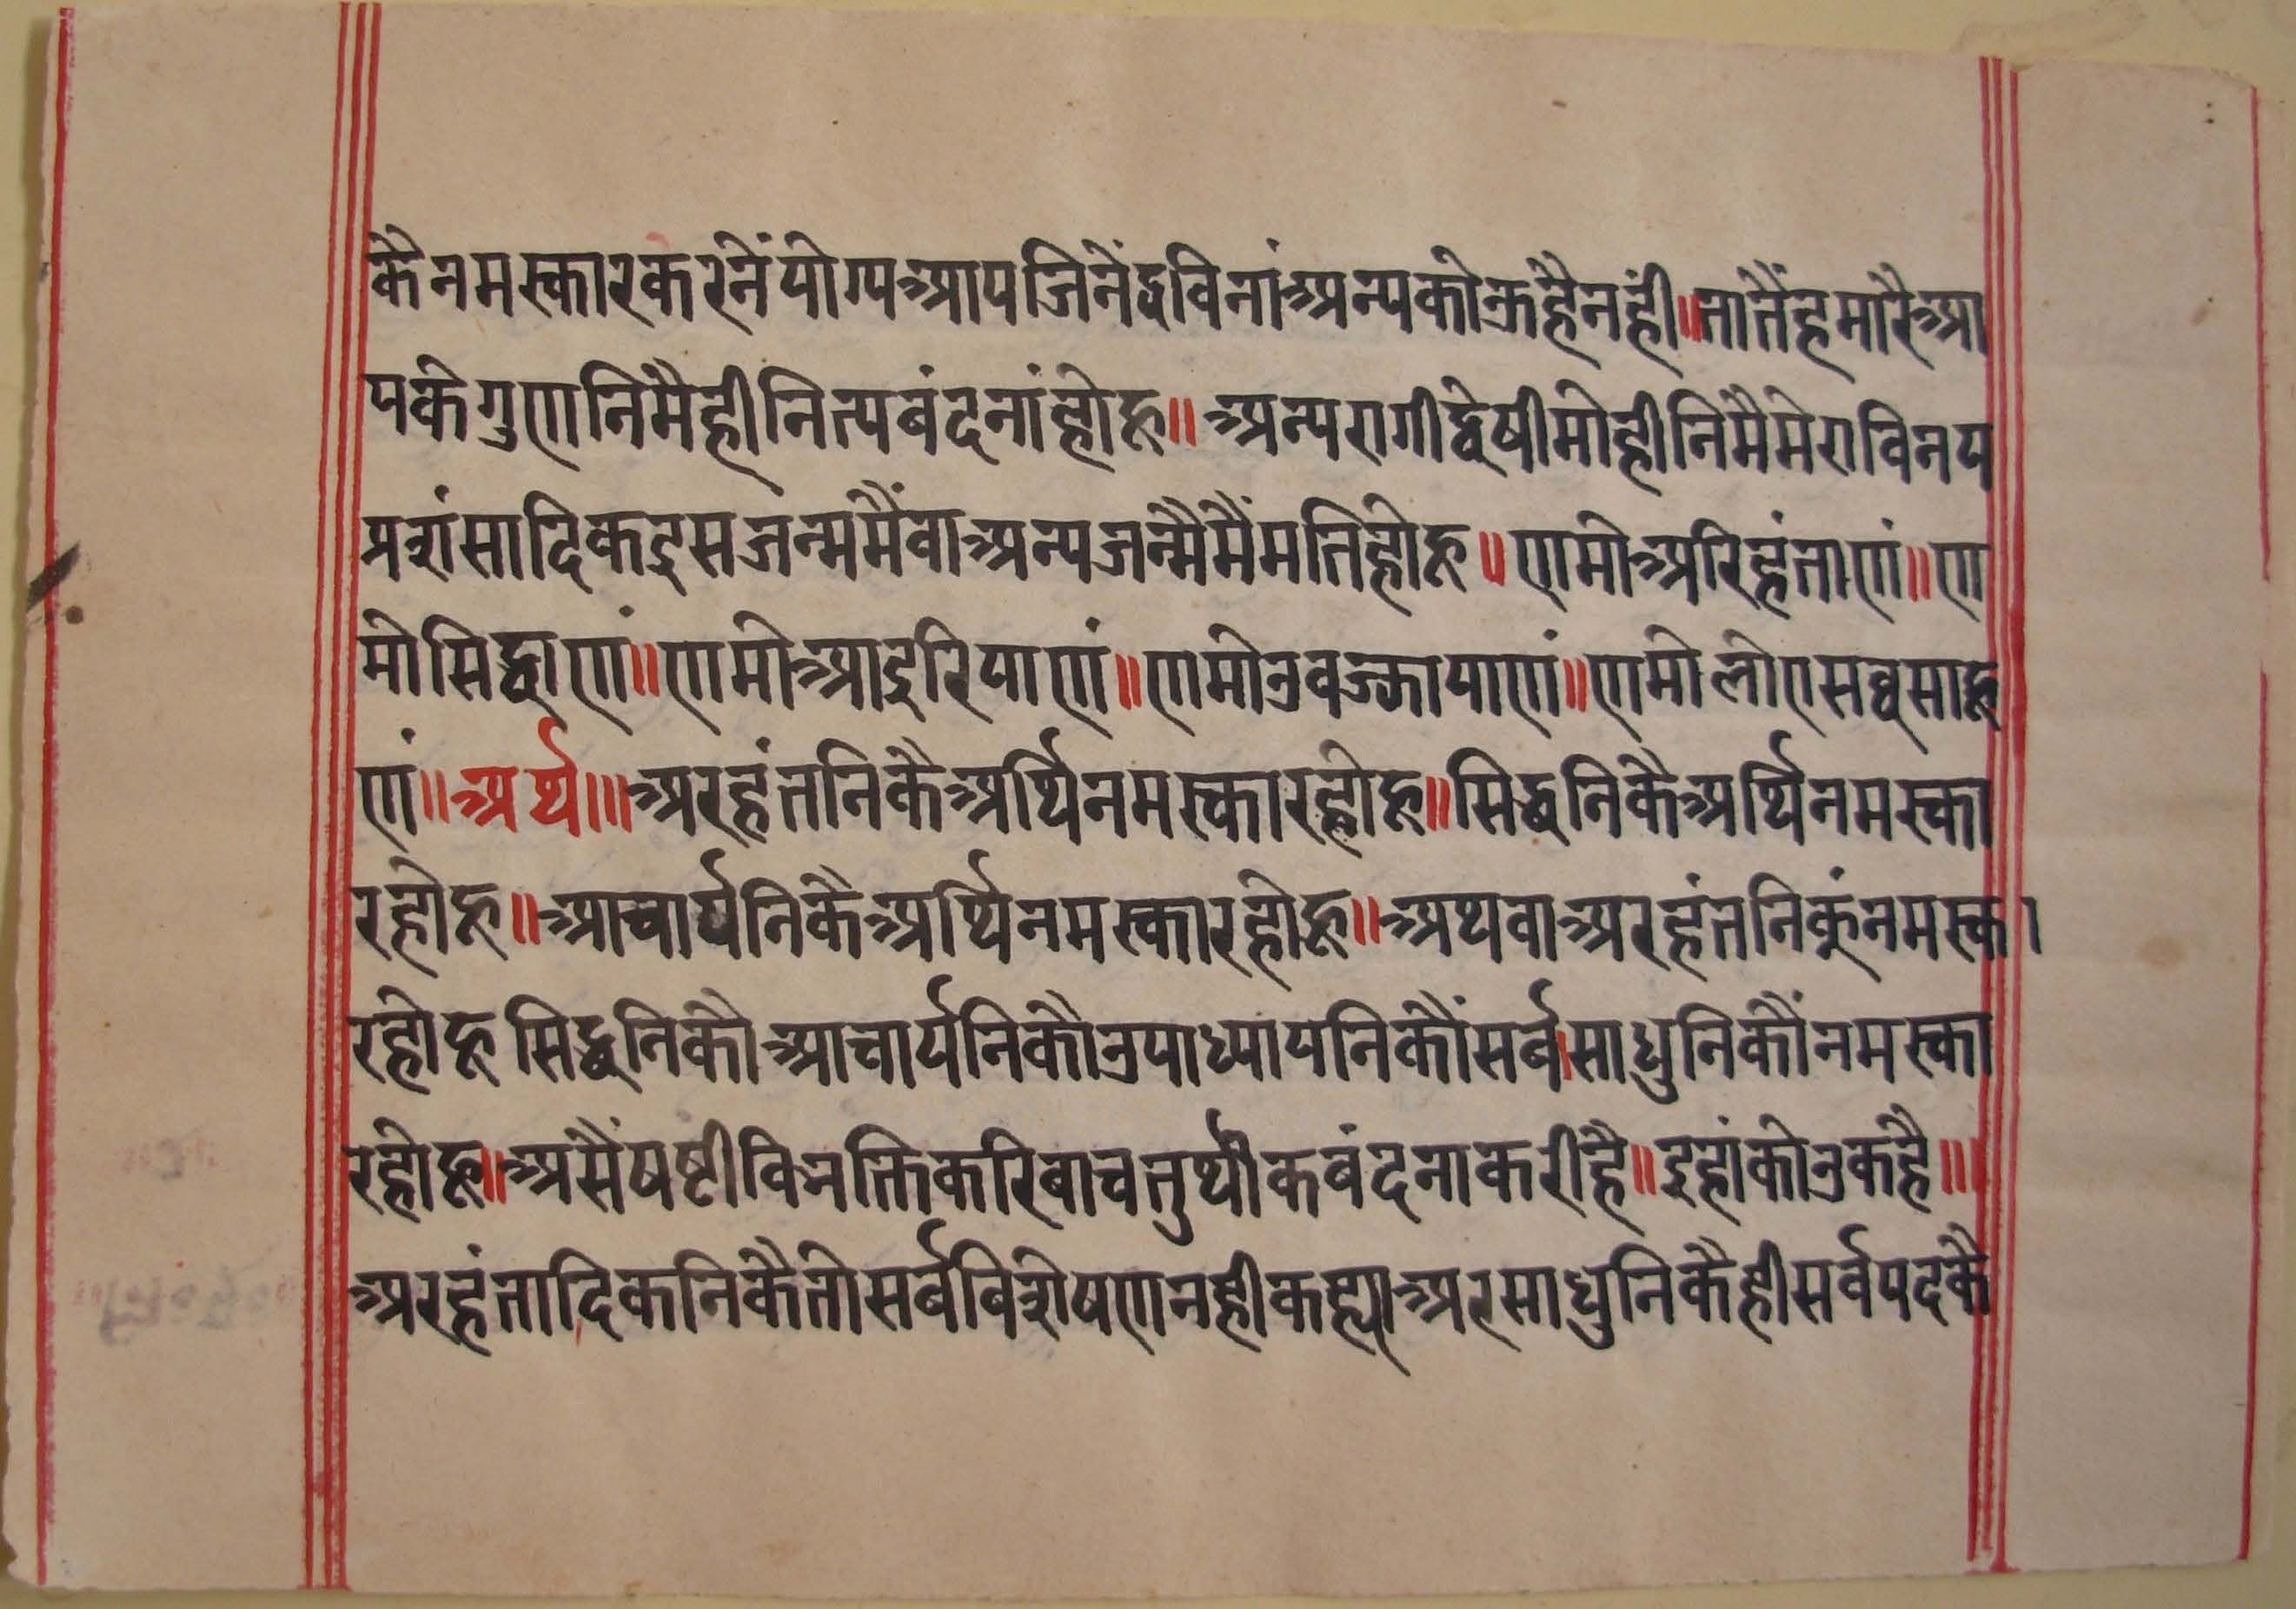 कैनमस्कारकरनेंयोग्यआपजिनेंद्रविनांअन्यकोऊहैनहीं॥तातैंहमारैआ
पकेगुणनिमैहीनित्यबंदनांहोहू॥अन्यरागीद्वेषीमोहीनिमैमेराविनय
प्रशंसादिकइसजन्ममैंवाअन्यजन्मैमैंमतिहोहू॥णमोअरिहंताणं॥ण
मोसिद्धाणं॥णमोआइरियाणं॥णमोउवज्झायाणं॥णमोलोएसव्वसाहू
णं॥अर्थ॥॥अरहंतनिकैअर्थिनमस्कारहोहू॥सिद्धनिकैअर्थिनमस्का
रहोहू॥आचार्यनिकैअर्थिनमस्कारहोहू॥अथवाअरहंतनिकुंनमस्का
रहोहूसिद्धनिकौआचार्यनिकौउपाध्यायनिकौंसर्बसाधुनिकौंनमस्का
रहोहू॥असैंषष्टीविभक्तिकरिबाचतुर्थीकबंदनाकरीहै॥इहांकोउकहै॥॥
अरहंतादिकनिकैतोसर्बविशेषणनहीकह्याअरसाधुनिकैहीसर्वपदकै